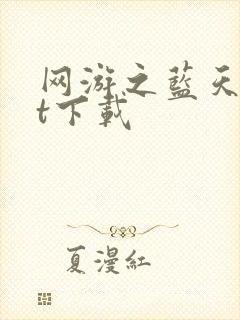 网游之蓝天
t下载
夏漫红